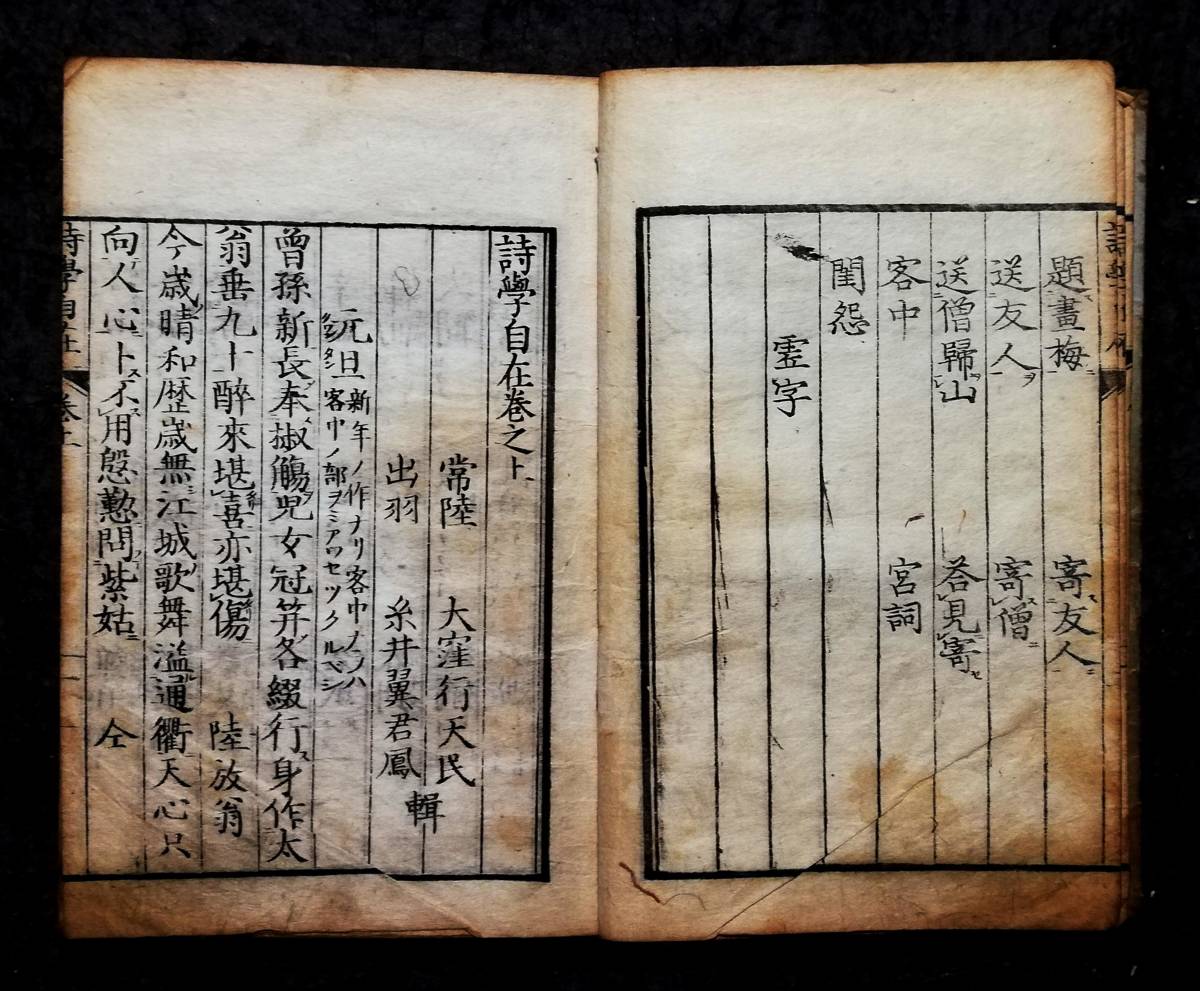 題畫梅 寄友人
送友人 寄僧
送僧歸山 答見寄
客中 宮詞
閨怨
雲字
詩學自在卷之上
常陸 大窪行天民
出羽 糸井翼君鳳 輯
元旦 新年ノ作ナリ客中ノノハ
客中ノ部ヲミアワセツクルベシ
曽孫新長奉椒觴兒女冠笄各綴行身作太
翁垂九十醉來堪喜亦堪傷 陸放翁
今歳晴和歴歳無江城歌舞溢通衢天心只
向人心卜不用慇懃問紫姑 仝
詩學自在 卷上